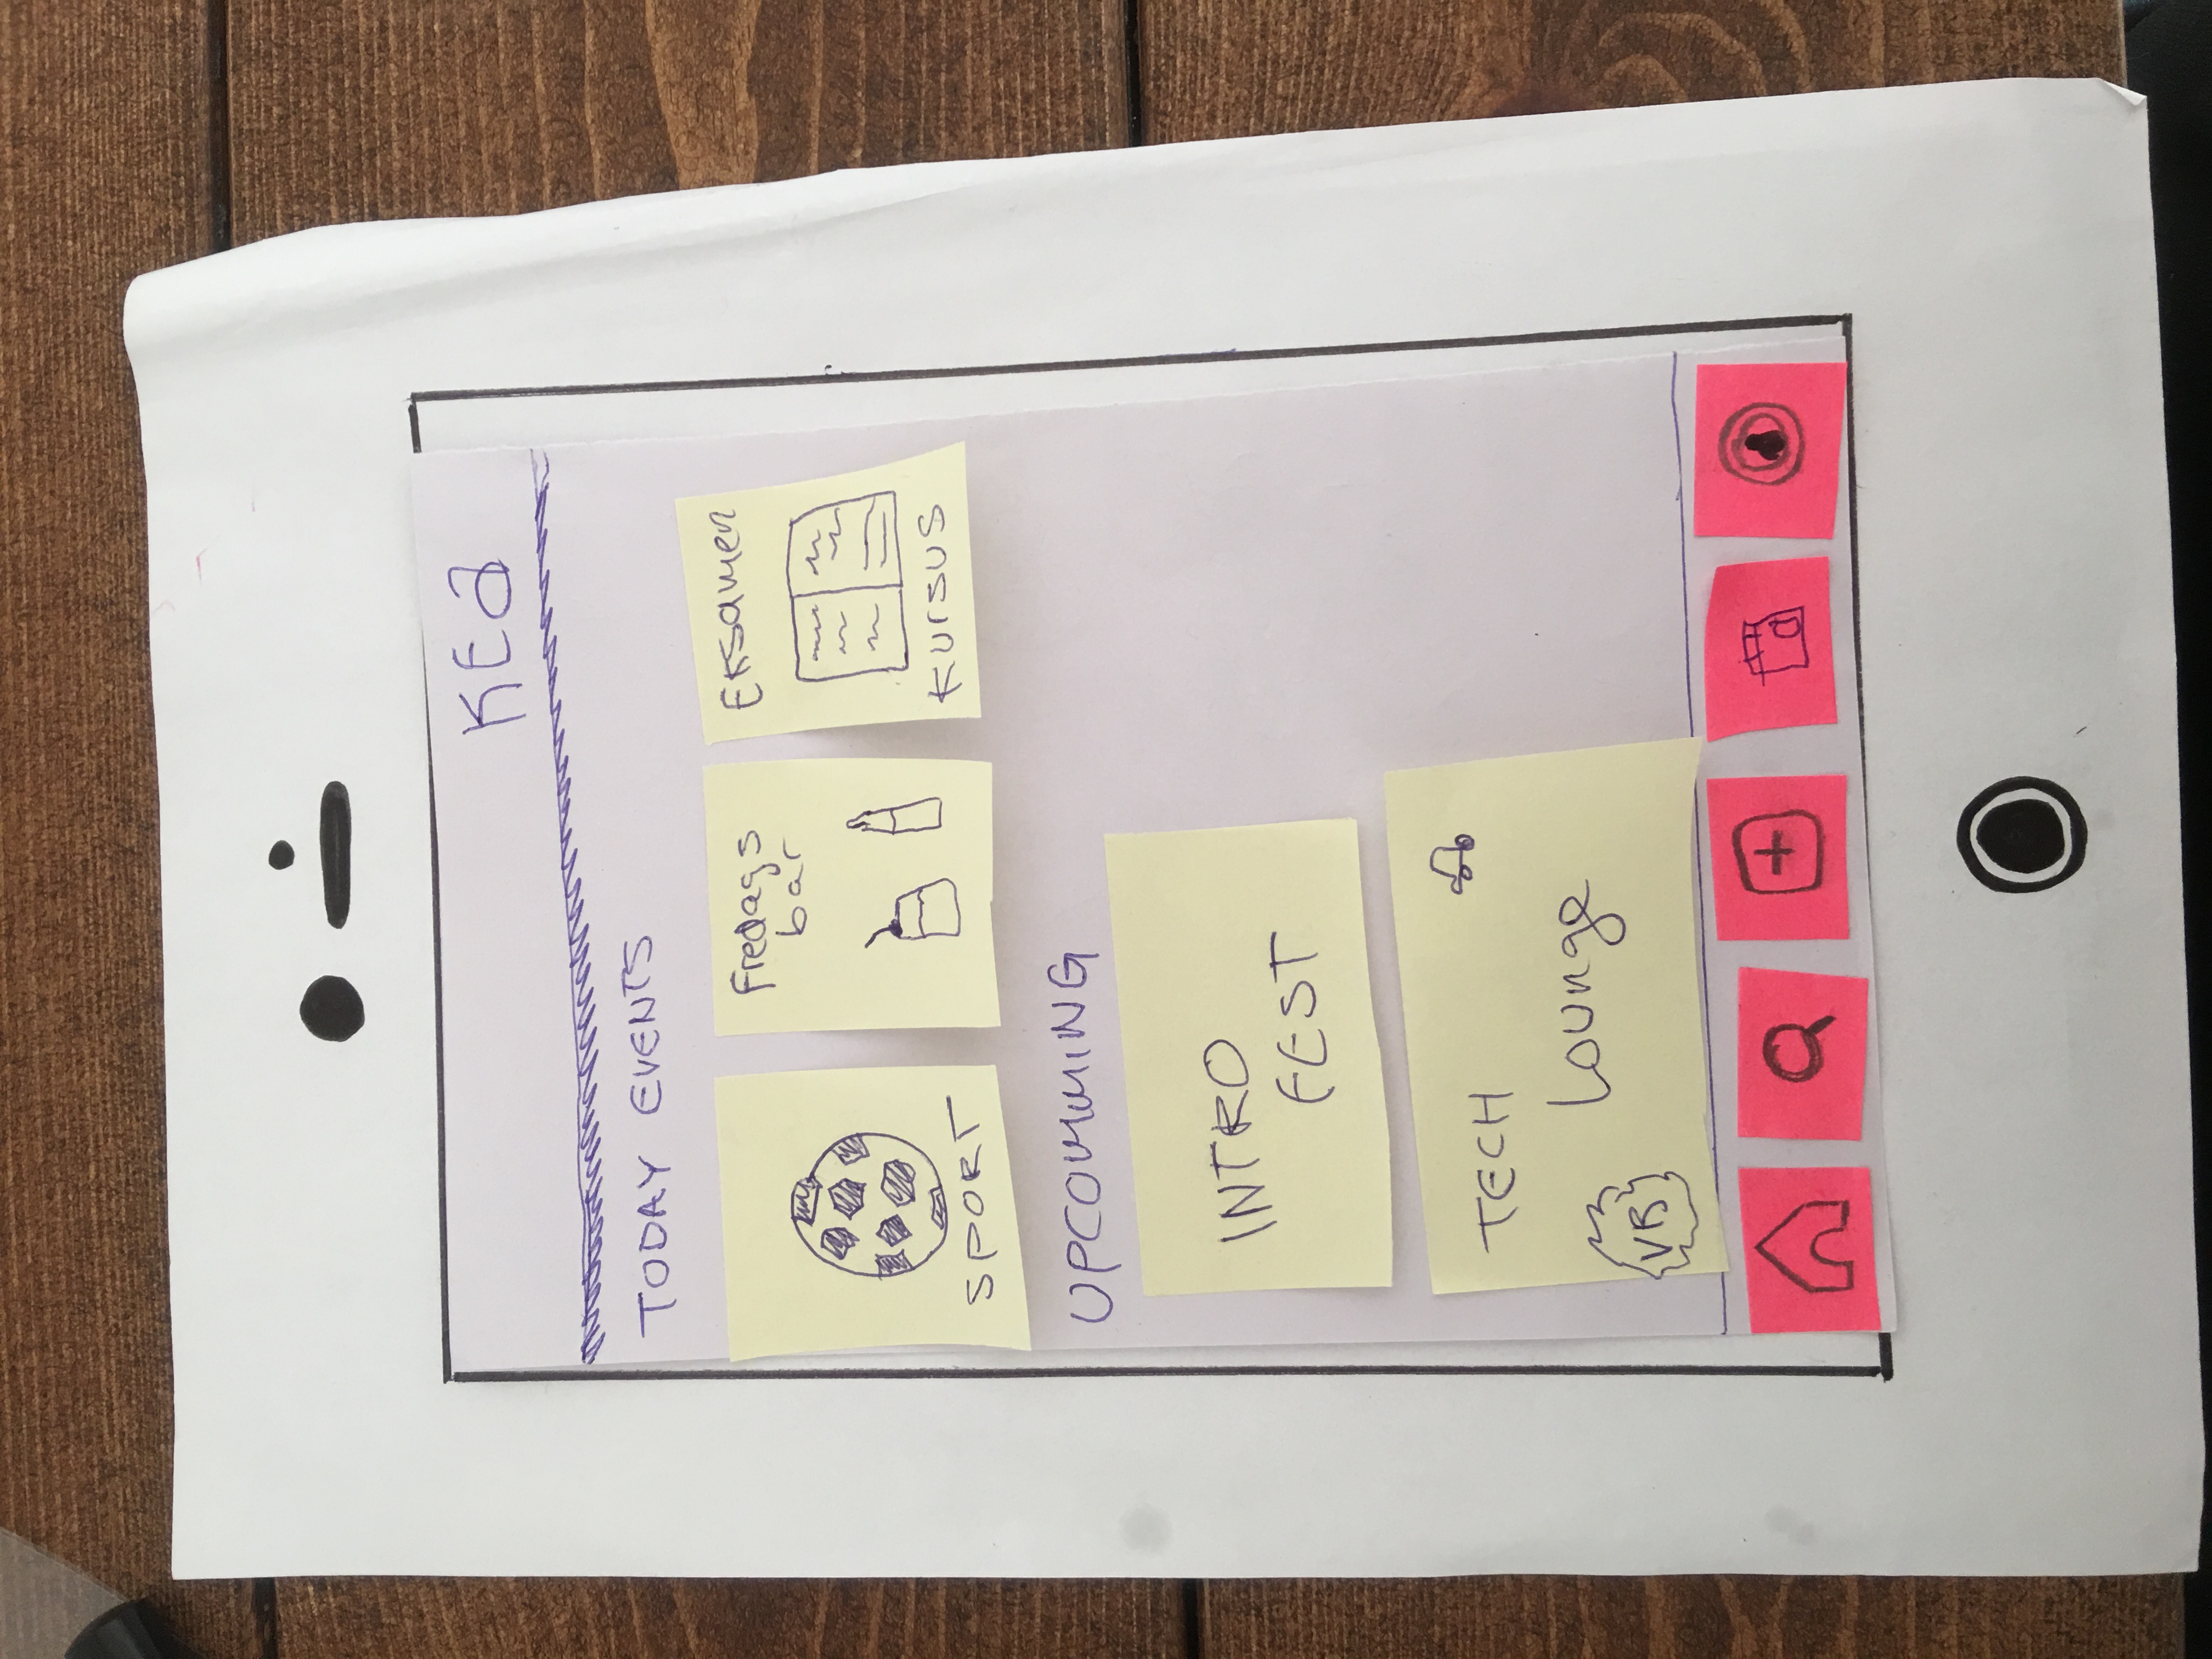 KEa
TODAY EVENTS
SPORT
Fredags
bar
Eksamen
Kursus
UPCOMMING
INTRO
FEST
TECH
Lounge
VB